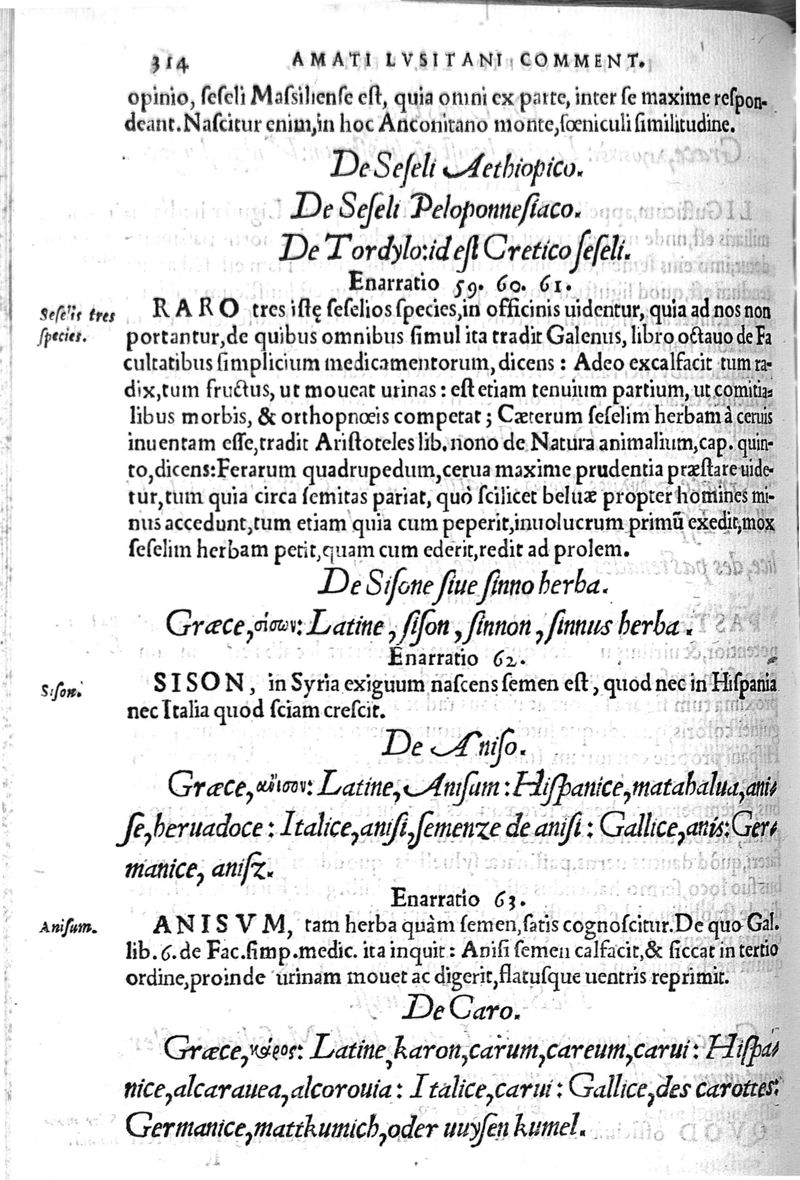 314 AMATI LVSITANI COMMENT.
opinio, ſeſeli Maſsilienſe eſt, quia omni ex parte, inter ſe maxime reſpon-
deant. Naſcitur enim, in hoc Anconitano monte, fœniculi ſimilitudine.
De Seſeli Aethiopico.
De Seſeli Peloponneſiaco.
De Tordylo: id eſt Cretico ſeſeli.
Enarratio 59. 60. 61.
Seſelis tres
ſpecies.
RARO tres iſtę ſeſelios ſpecies, in officinis uidentur, quia ad nos non
portantur, de quibus omnibus ſimul ita tradit Galenus, libro octauo de Fa
cultatibus ſimplicium medicamentorum, dicens: Adeo excalfacit tum ra-
dix, tum fructus, ut moueat urinas: eſt etiam tenuium partium, ut comitia-
libus morbis, & orthopnœis competat; Cæterum ſeſelim herbam à ceruis
inuentam eſſe, tradit Ariſtoteles lib. nono de Natura animalium, cap. quin-
to, dicens: Ferarum quadrupedum, cerua maxime prudentia præſtare uide-
tur, tum quia circa ſemitas pariat, quò ſcilicet beluæ propter homines mi-
nus accedunt, tum etiam quia cum peperit, inuolucrum primũ exedit, mox
ſeſelim herbam petit, quam cum ederit, redit ad prolem.
De Siſone ſiue ſinno herba.
Græce, σίσων: Latine, ſiſon, ſinnon, ſinnus herba.
Enarratio 62.
Siſon.
SISON, in Syria exiguum naſcens ſemen eſt, quod nec in Hiſpania
nec Italia quod ſciam creſcit.
De Aniſo.
Græce, ἄνισον: Latine, Aniſum: Hiſpanice, matahalua, ani-
ſe, heruadoce: Italice, aniſi, ſemenze de aniſi: Gallice, anis: Ger-
manice, aniſz.
Enarratio 63.
Aniſum.
ANISVM, tam herba quàm ſemen, ſatis cognoſcitur. De quo Gal.
lib. 6. de Fac. ſimp. medic. ita inquit: Aniſi ſemen calfacit, & ſiccat in tertio
ordine, proinde urinam mouet ac digerit, flatuſque uentris reprimit.
De Caro.
Græce, κάρος: Latine, karon, carum, careum, carui: Hiſpa-
nice, alcarauea, alcorouia: Italice, carui: Gallice, des carottes:
Germanice, mattkumich, oder uuyſen kumel.